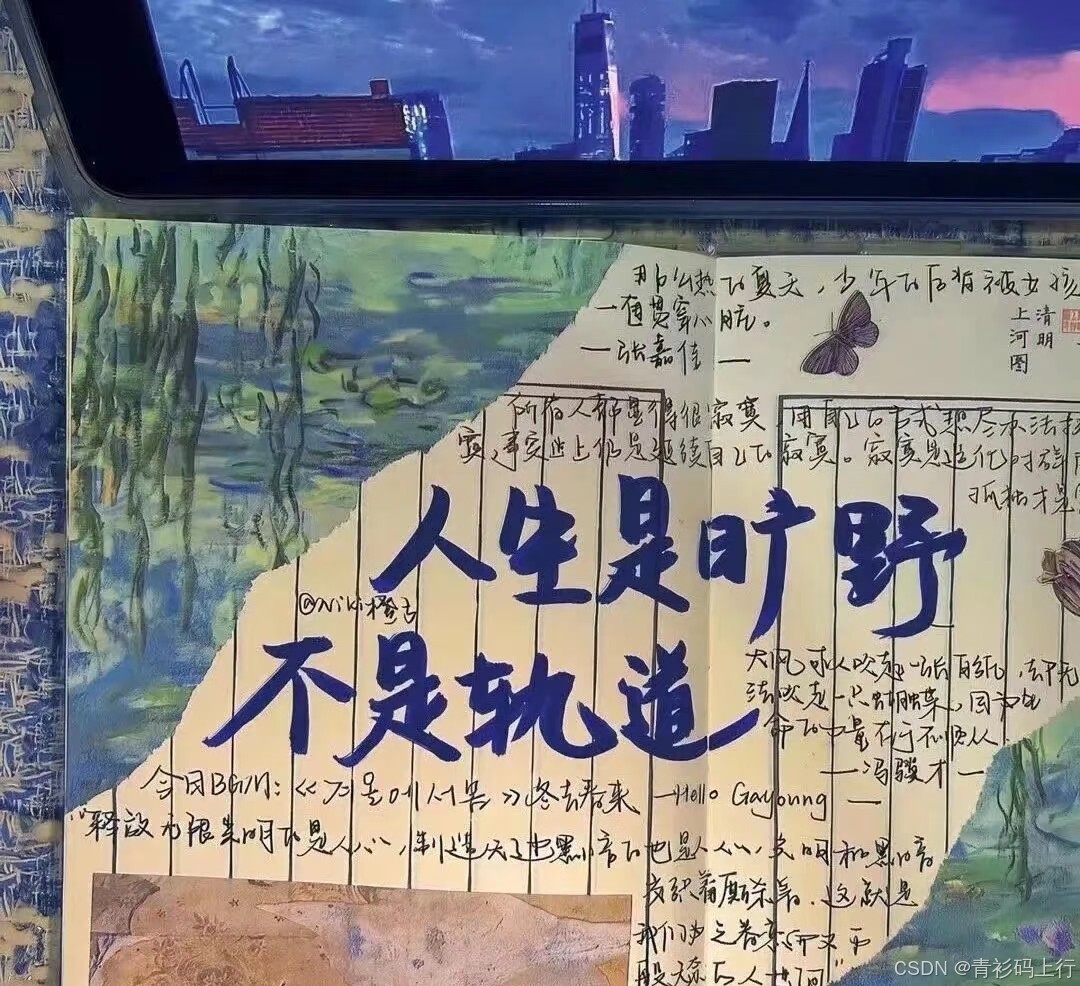 那么热的夏天，少年的后背被女孩
一直贯穿心脏。
—张嘉佳—
清明
上河图
所有人都是得很寂寞，用自己的方式想尽办法
寞，事实上仍是延续自己的寂寞。寂寞是造化对群
孤独才是
人生是旷野
@Niki橙子
不是轨道
大风可以吹起一张白纸，却无
法吹走一只蝴蝶，因为生
命的力量在于不顺从
—冯骥才—
今日BGM：《겨울에서 봄》冬去春来 —Hello Gayoung—
"释放无限光明的是人心，制造无边黑暗的也是人心，光明和黑暗
交织着厮杀着，这就是
我们为之眷恋而又万
般无奈的人世间"
CSDN @青衫码上行